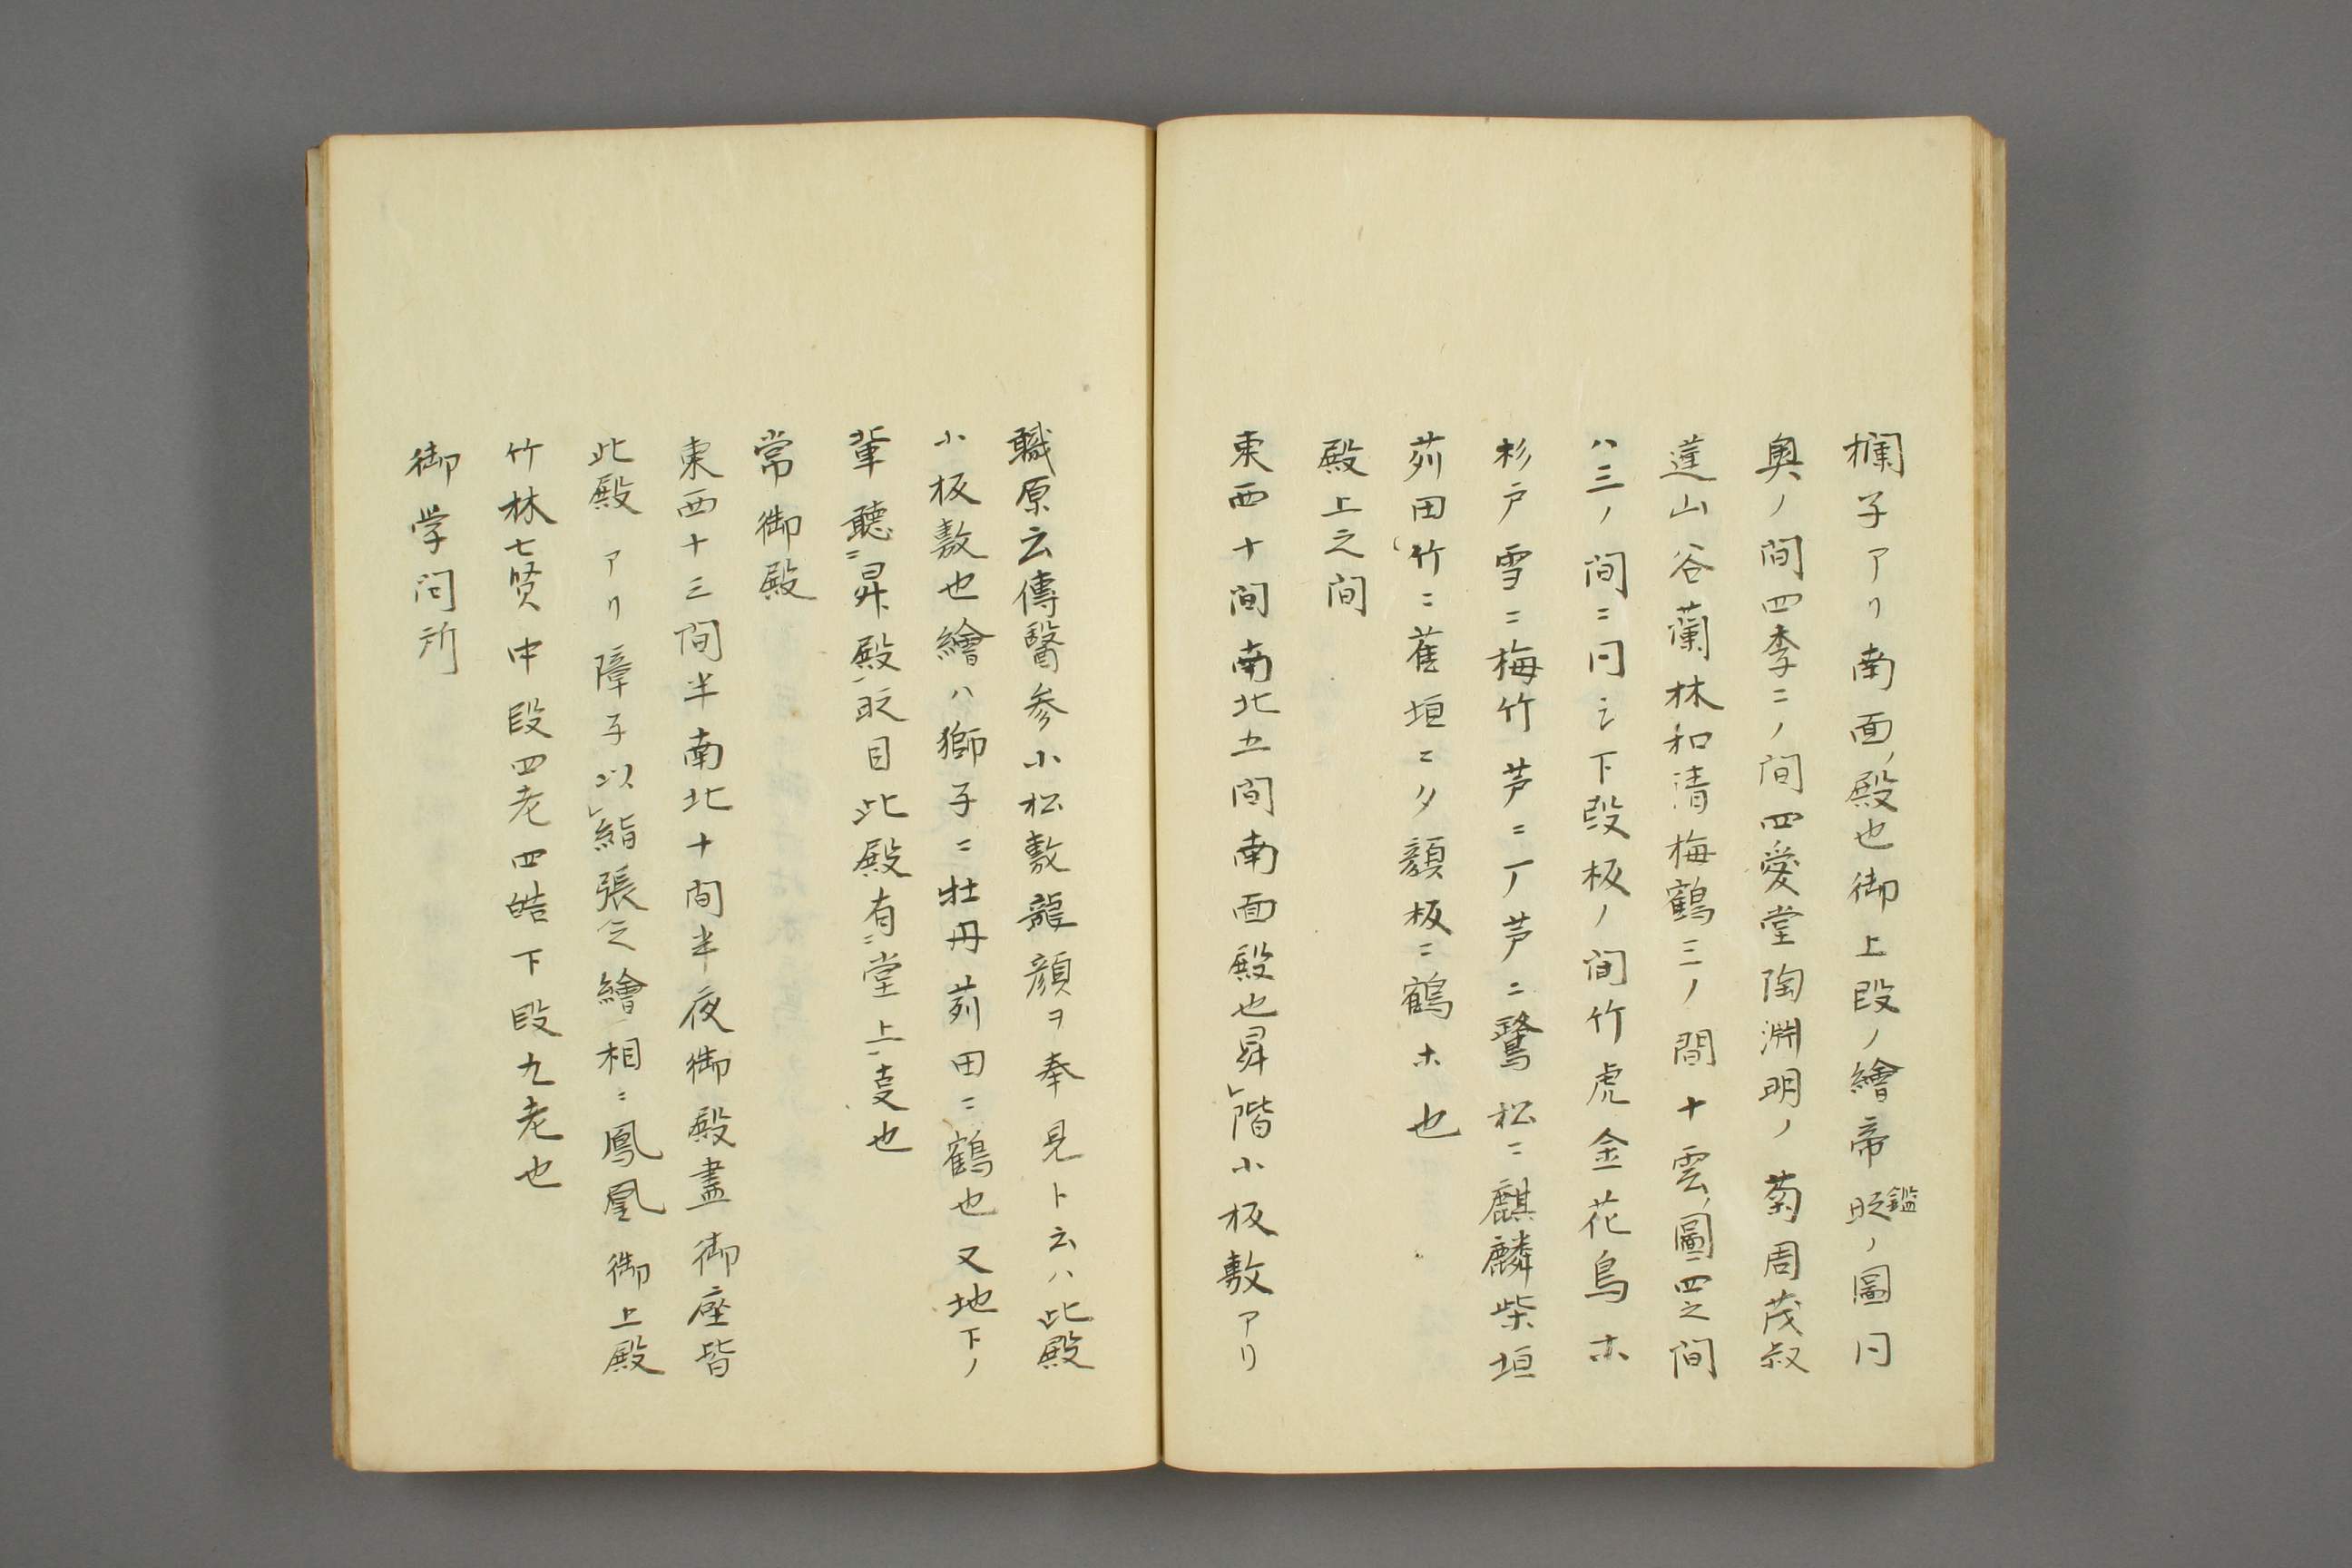 欄子アリ南面ノ殿也御上段ノ繪帝眨鑑ノ圖同
奥ノ間四季二ノ間四愛堂陶淵明ノ菊周茂叔
蓮山谷蘭林和清梅鶴三ノ間十雲ノ圖四之間
ハ三ノ間ニ同シ下段板ノ間竹虎金花鳥ホ
杉戸雪ニ梅竹芦ニ丁芦ニ鷺松ニ麒麟柴垣
苅田竹ニ蕉垣ニ夕顔板ニ鶴ホ也
殿上之间
東西十間南北五間南面殿也昇階小板敷アリ
職原云傳醫参小松敷龍顔ヲ奉見ト云ハ此殿
小板敷也繪ハ獅子ニ牡丹苅田ニ鶴也又地下ノ
輩聽ニ昇殿ノ眨目此殿有ニ堂上ノ㕝也
常御殿
東西十三間半南北十間半夜御殿晝御座皆
此殿アリ障子以絹張之繪ノ桐ニ鳳凰御上殿
竹林七賢中段四老四皓下段九老也
御学问所